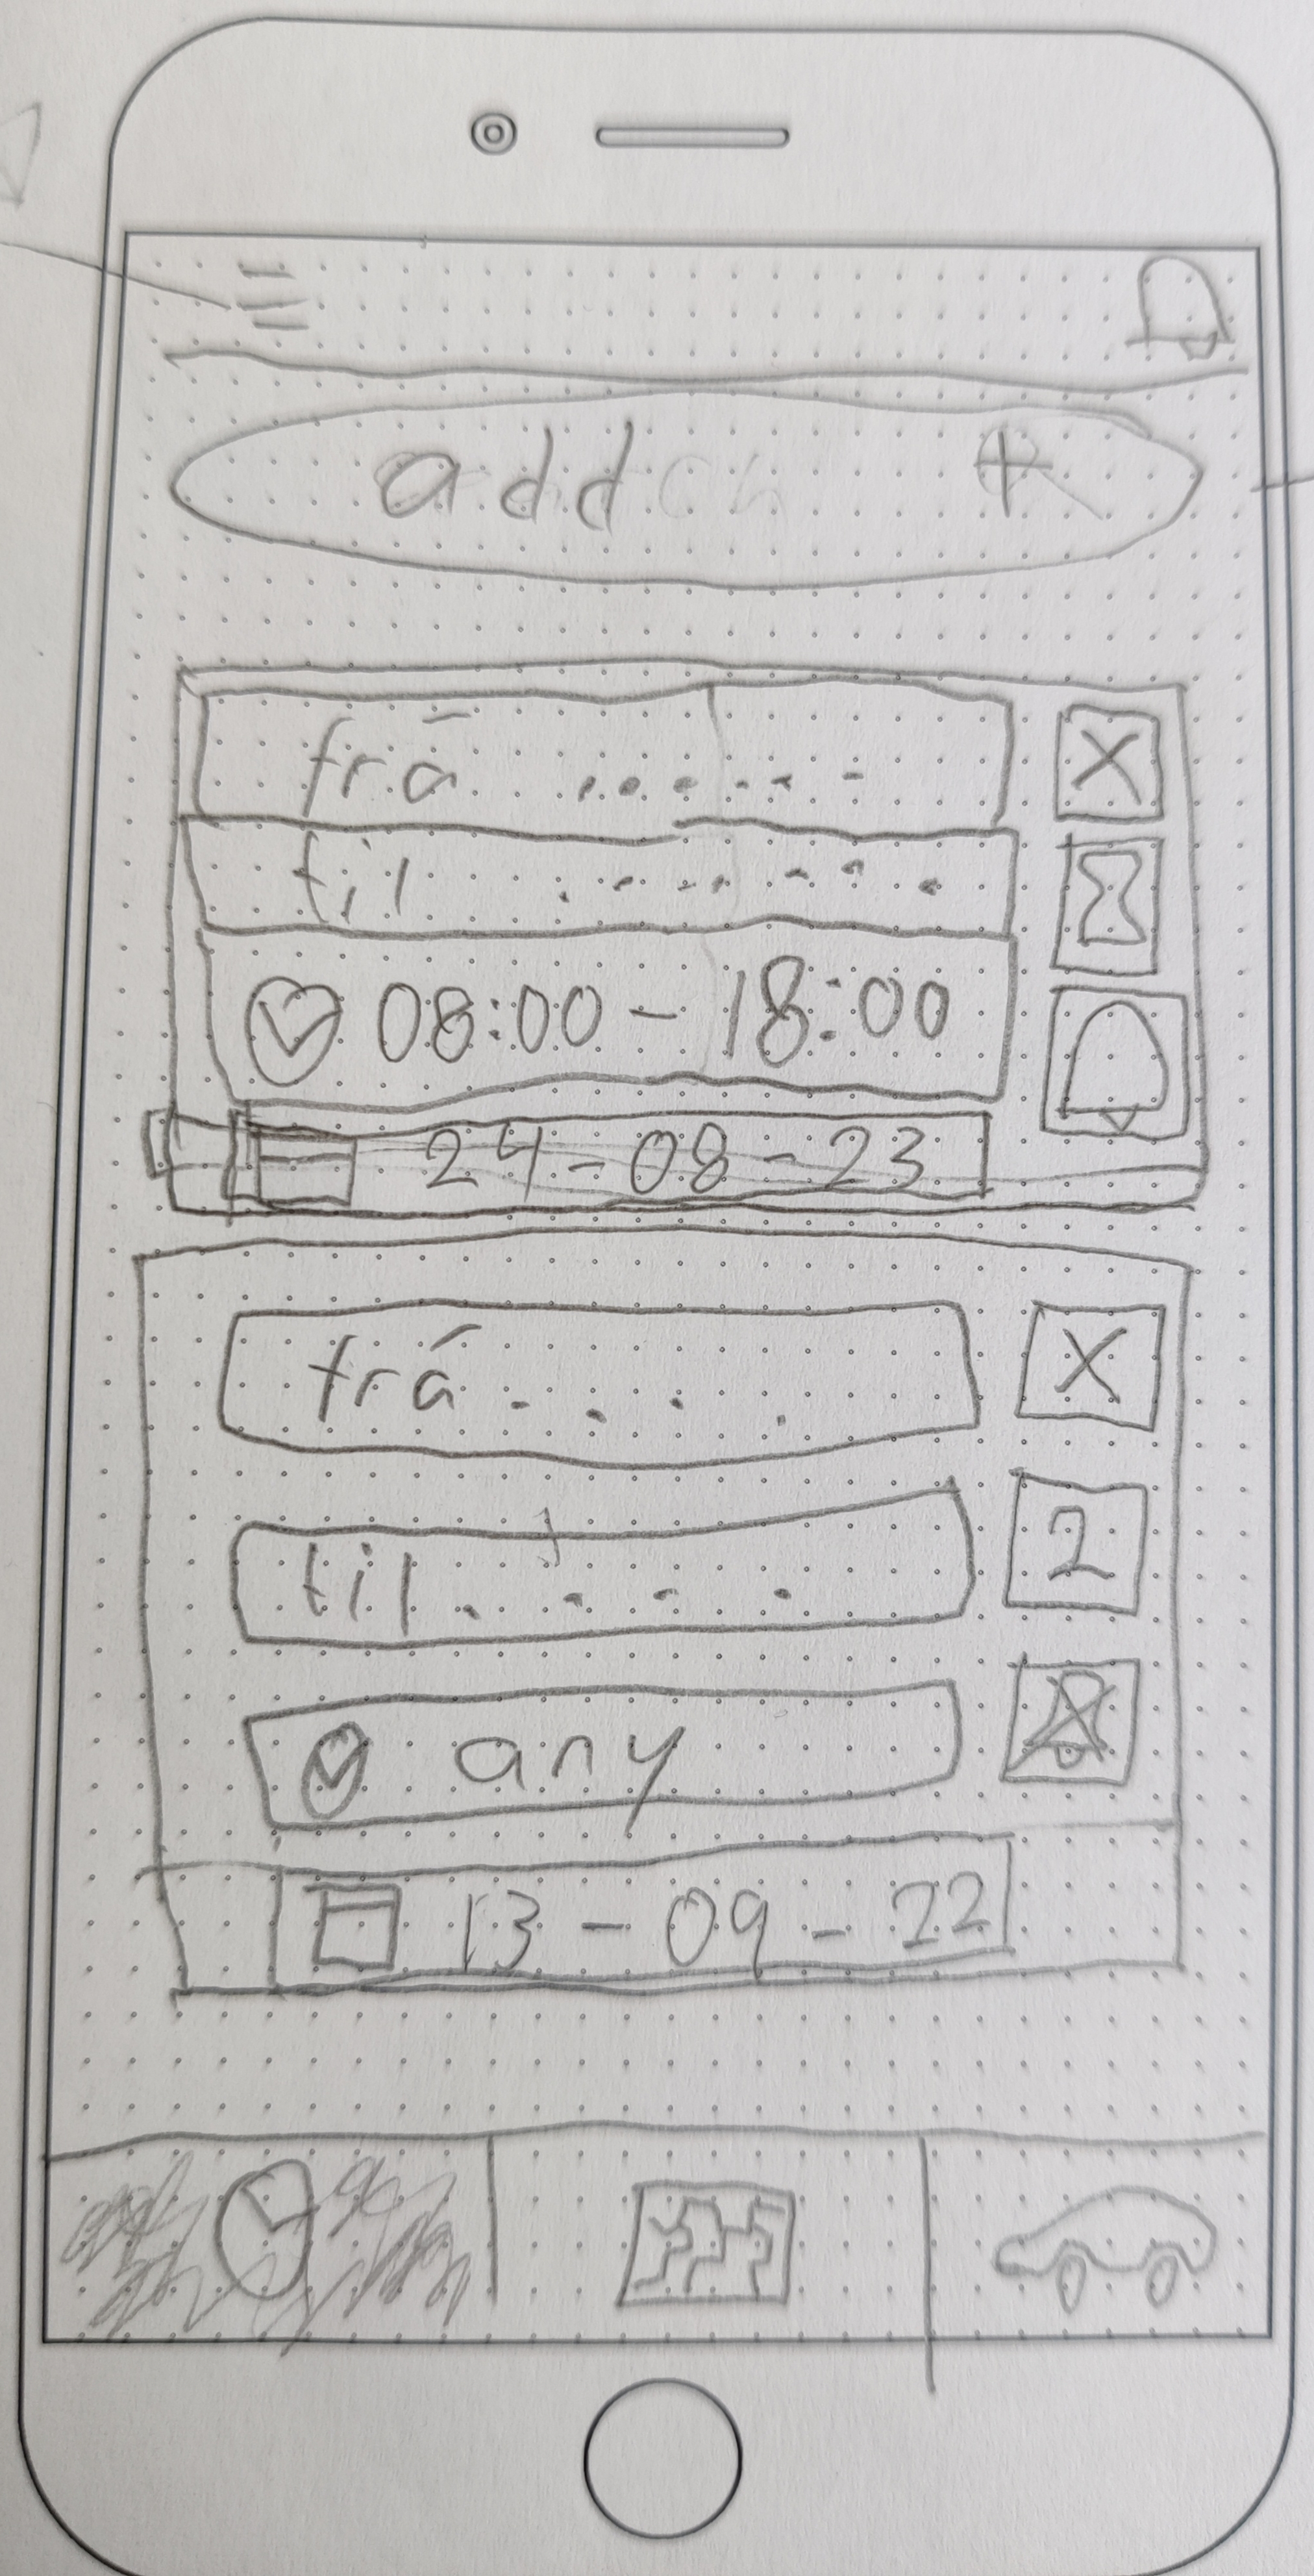 add +
frá ......
X
til .......
08:00 - 18:00
24-08-23
frá....
X
til....
2
any
13-09-22